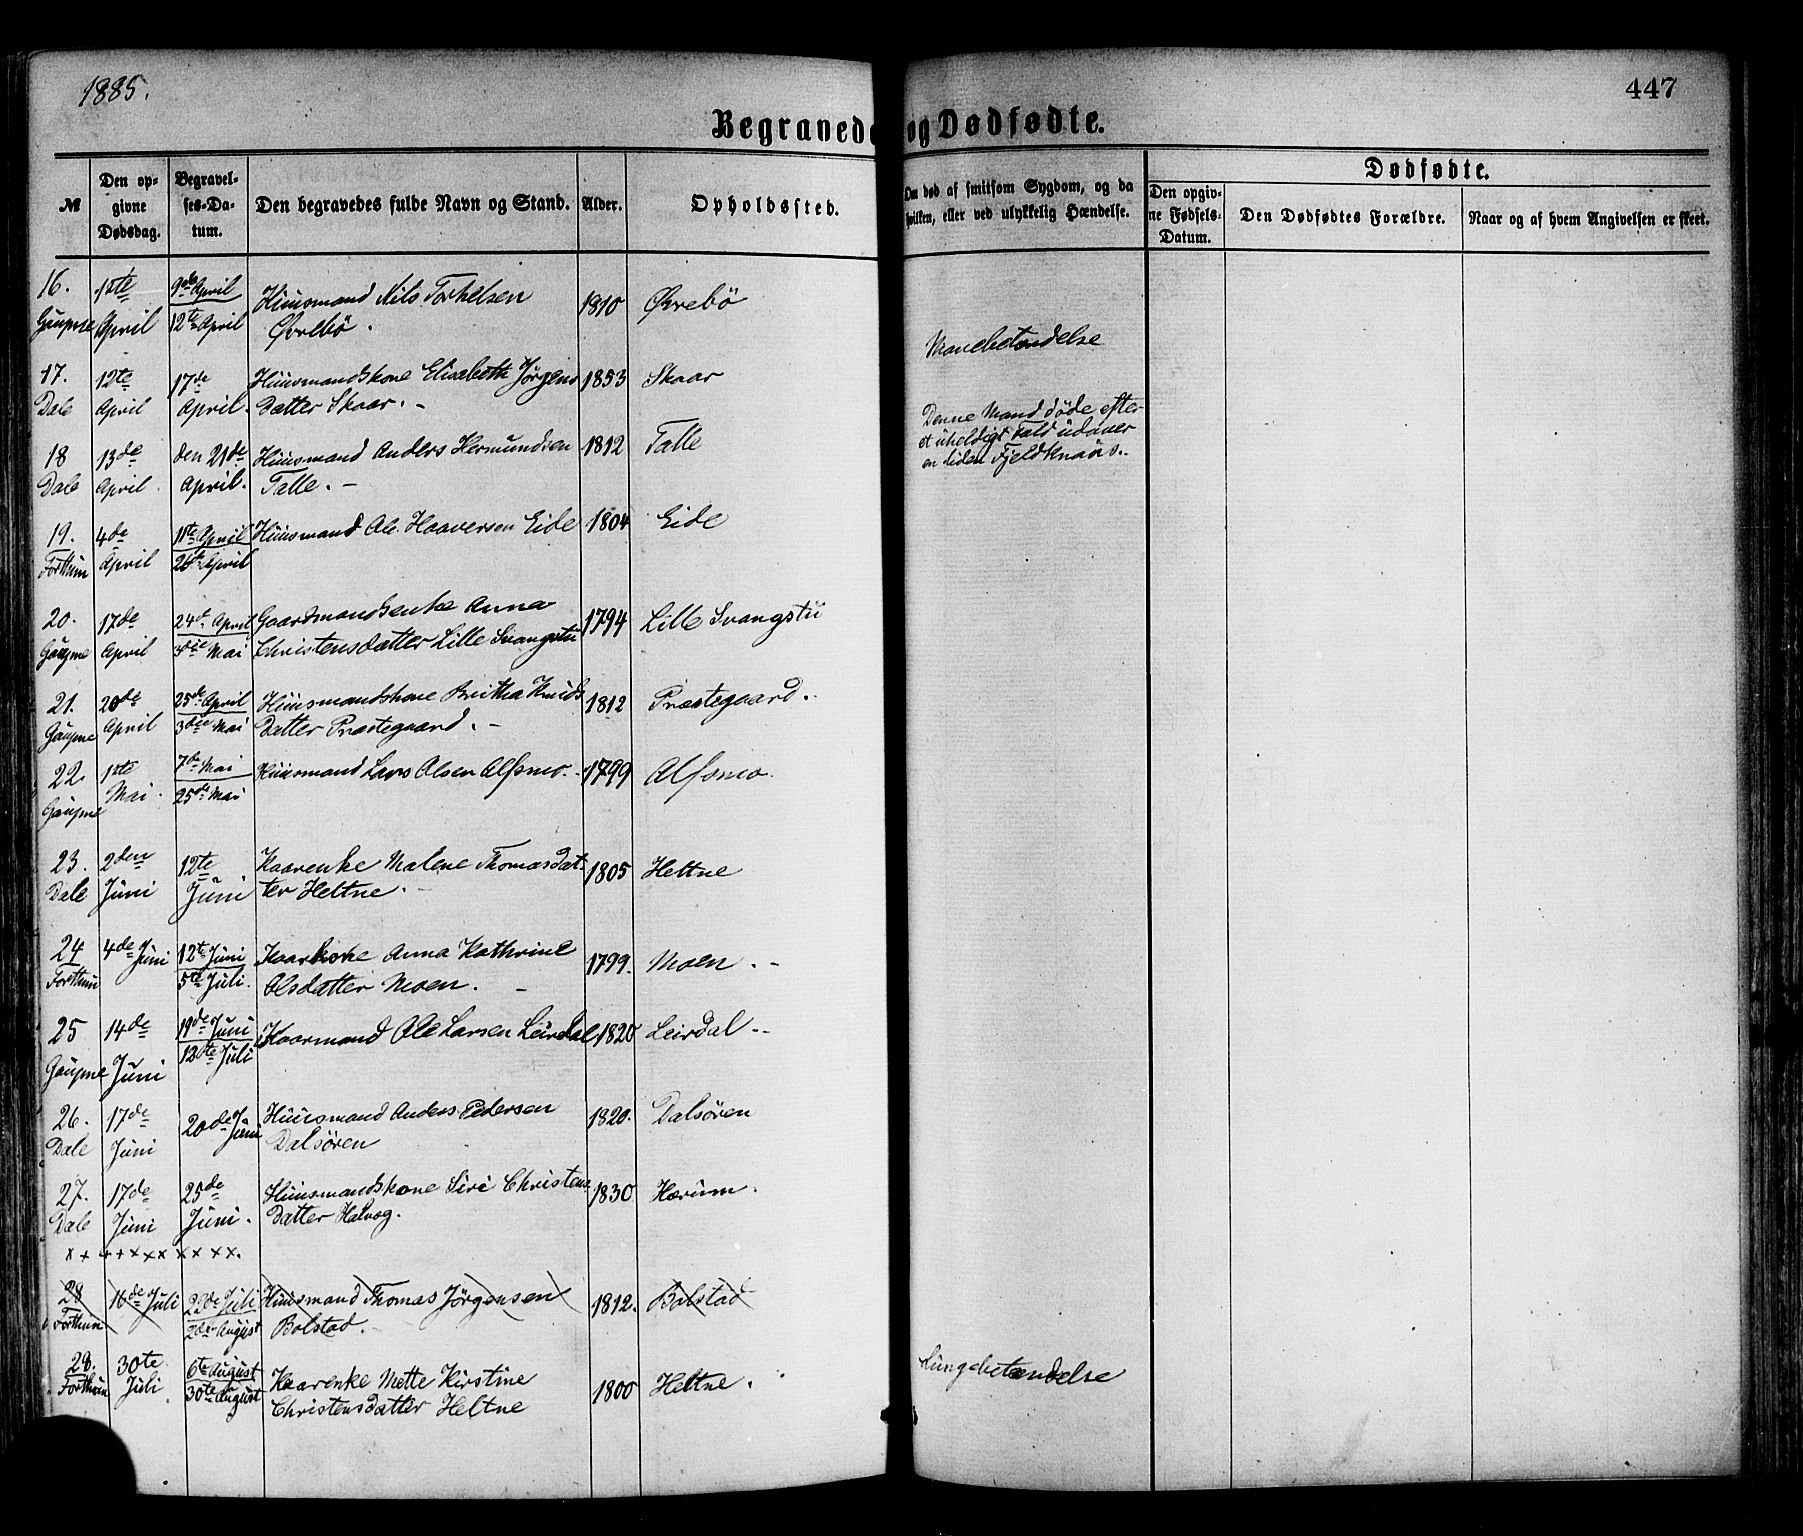 1885.
447
Begravede og Dødfødte.
№
Den opgivne Dødsdag.
Begravelses-Datum.
Den begravedes fulde Navn og Stand.
Alder.
Opholdssted.
Om død af smitsom Sygdom, og da hvilken, eller ved ulykkelig Hændelse.
Dødfødte.
Den opgivne Fødsels-Datum.
Den Dødfødtes Forældre.
Naar og af hvem Angivelsen er skeet.
16. 1ste 9de April Huusmand Nils Torkelsen 1810 Øvrebö
Gaupne April 12te April Øvrebö.
17. 12te 17de Huusmandskone Elisabeth Jørgens 1853 Skaar Mavebetændelse
Dale April April. Datter Skaar. -
18 13de den 21de Huusmand Anders Hermundsen 1812 Talle Denne Mand døde efter
Dale April. April. Talle. - et uheldigt Fald udover
en liden Fjeldknaus..
19. 4de 11te April Huusmand Ole Haaversen Eide 1804 Eide
Forthun April 26te April
20. 17de 24de April Gaardmandsenke Anna 1794 Lille Svangstü
Gaupne April 3die Mai Christensdatter Lille Svangstü
21. 20de 25de April Huusmandskone Britha Knuds 1812 Præstegaard.
Gaupne April 3die Mai Datter Præstegaard. -
22. 1ste 7de Mai Huusmand Lars Olsen Alfsmo. 1799 Alfsmo.
Gaupne Mai. 25de Mai
23. 2den 12te Kaarenke Malene Thomasdat- 1805 Heltne
Dale Juni Juni ter Heltne. -
24 4de Juni 12te Juni Kaarkone Anna Kathrine 1799. Moen. -
Forthun 5te Juli. Olsdatter Moen. -
25 14de 19de Juni Kaarmand Ole Larsen Leirdal 1820 Leirdal --
Gaupne Juni 12te Juli
26. 17de 20de Juni Huusmand Anders Pedersen 1820. Dalsören
Dale Juni Dalsören
27. 17de 25de Huusmandskone Siri Christens 1830 Hærum.
Dale Juni Juni. Datter Halvog.
x + + + x x x x x x x.
28 16de Juli 22de Juli Huusmand Thomas Jørgensen 1812. Bolstad
Forthun 2den August Bolstad.
28. 30te 6te August Kaarenke Mette Kirstine 1800 Heltne. Lungebetændelse
Forthun Juli. 30te August Christensdatter Heltne